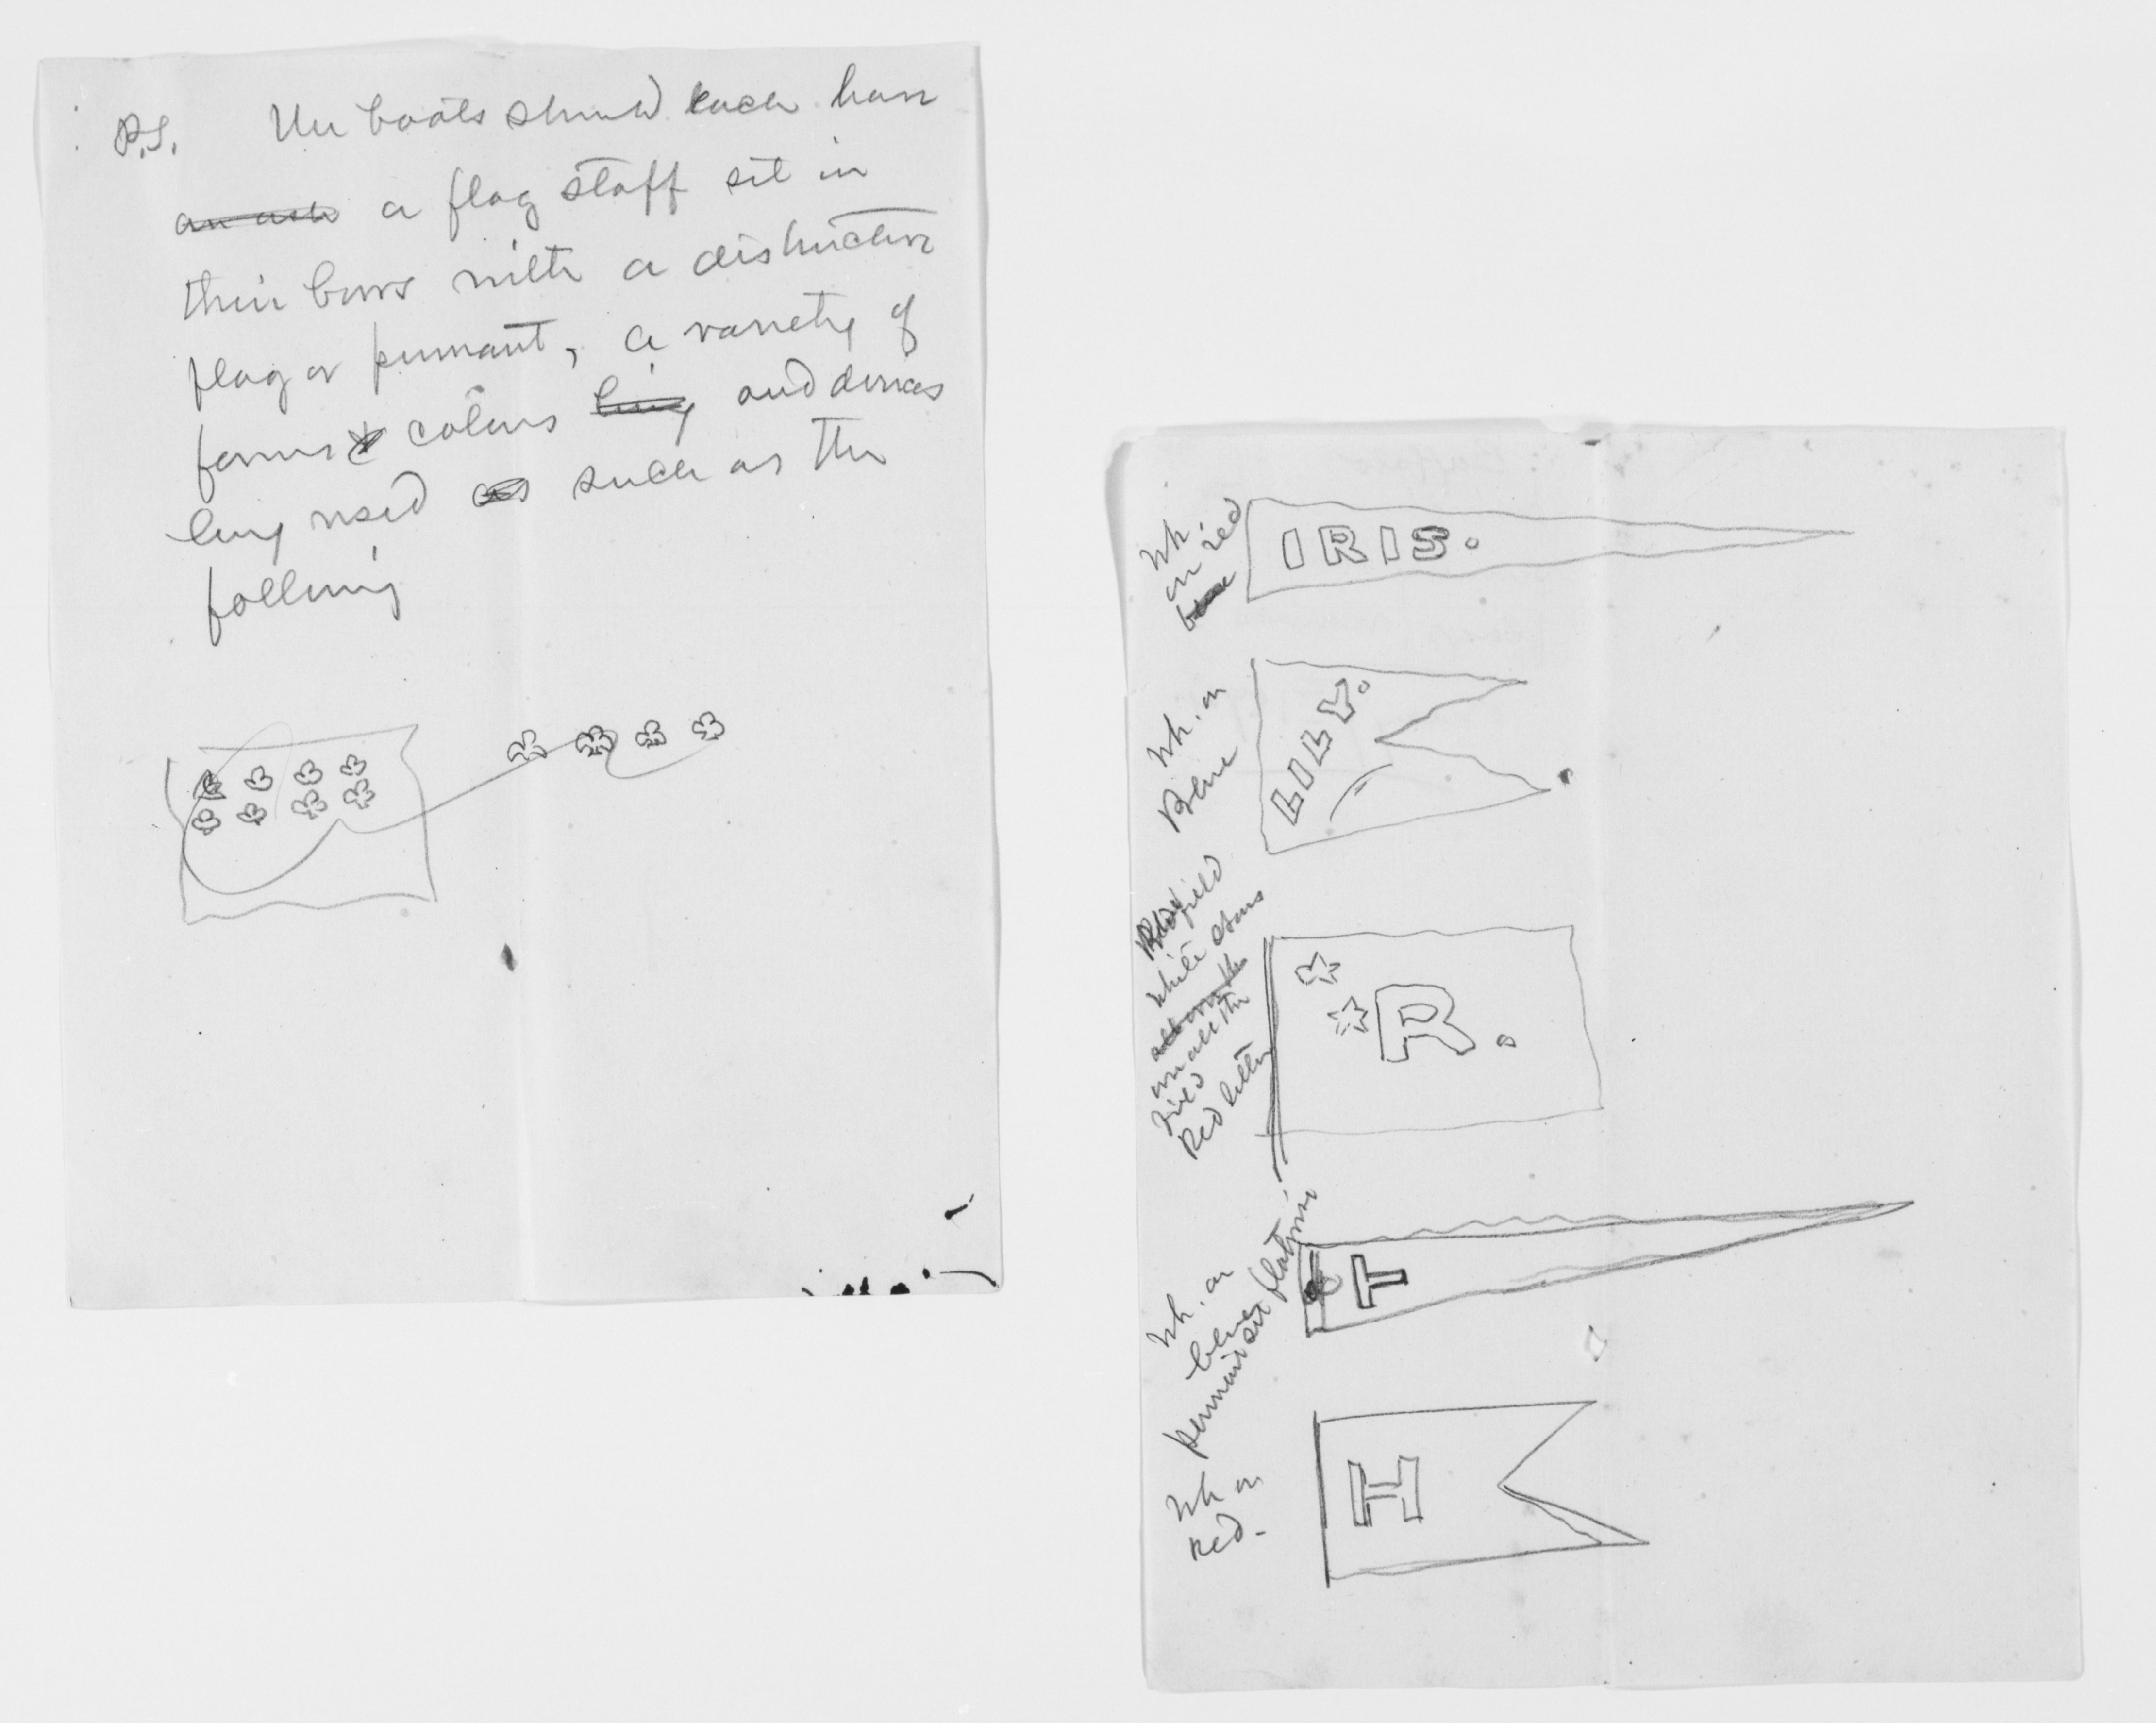 P.S. The boats should each have
an ash a flag staff set in
their bows with a distinctive
flag or pennant, a variety of
forms & colors being and devices
being used as such as the
following
Wh
on red
blue
IRIS.
Wh. on
Blue
LILY.
field
white stars
on all the
field
Red letter
R.
Wh. on
blue
T
Wh on
Red.
H